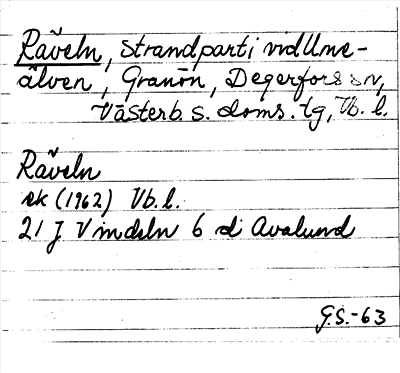 Räveln, strandparti vid Ume-
älven, Granön, Degerfors sn,
Västerb. s. doms. tg, Vb. l.
Räveln
ek (1962) Vb. l.
21 J Vindeln 6 d Avalund
G.S.-63